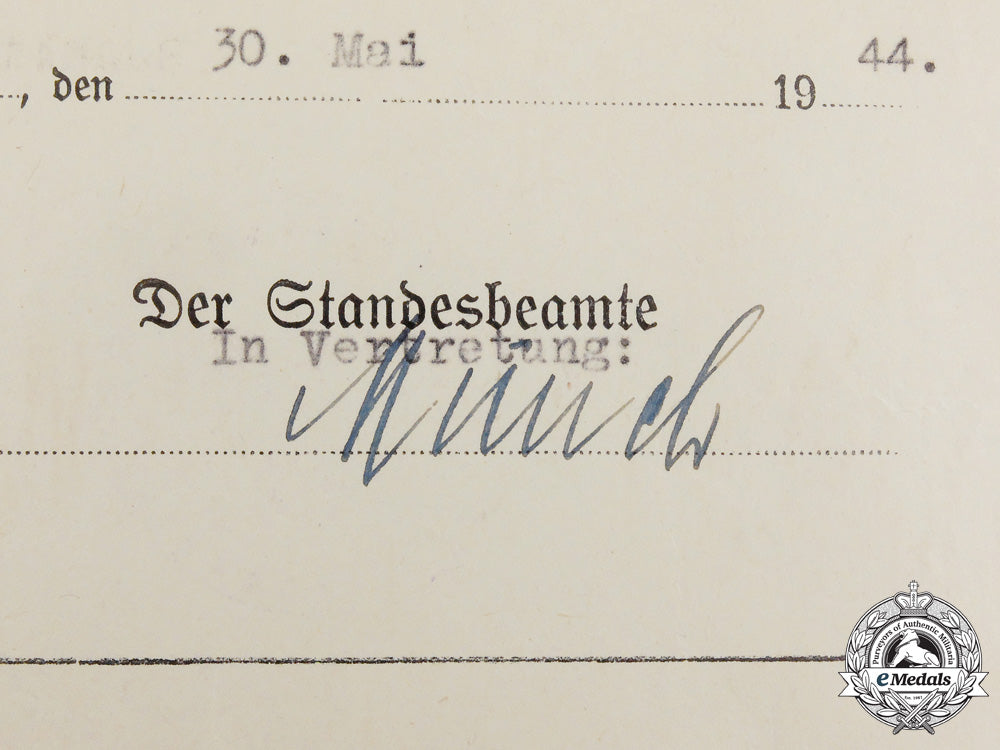 , den 30. Mai 1944.
Der Standesbeamte
In Vertretung:
Münch
Purveyors of Authentic Militaria
eMedals
Est. 1967